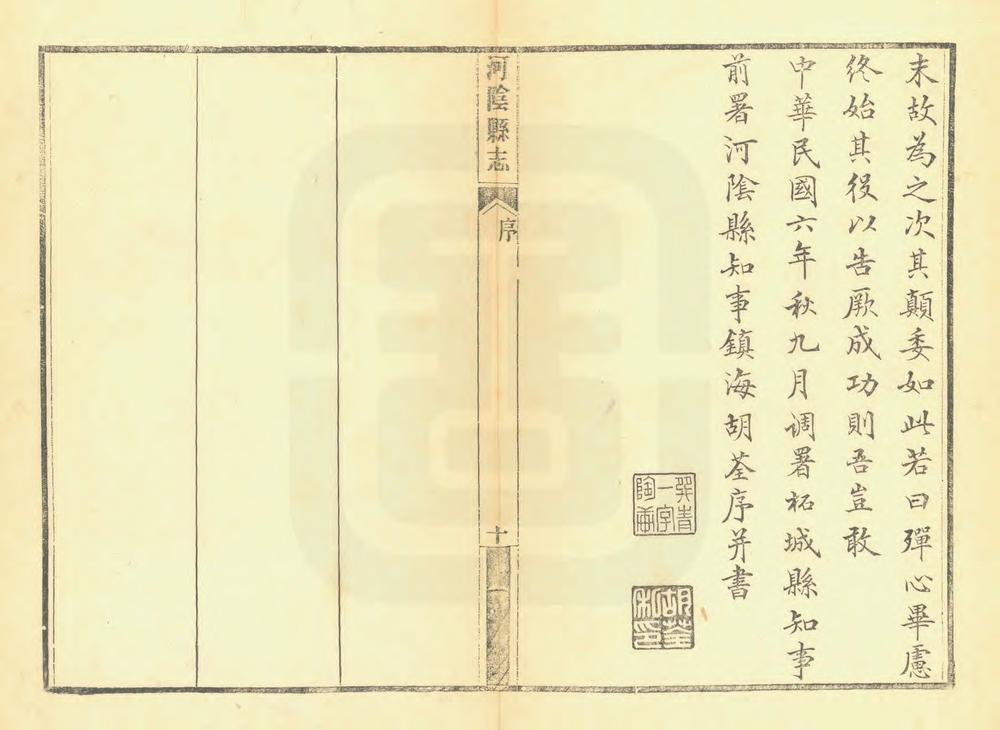 末故為之次其顛委如此若曰彈心畢慮
終始其役以告厥成功則吾豈敢
中華民國六年秋九月调署柘城縣知事
前署河陰縣知事鎮海胡荃序并書
一字
胡荃私印
河陰縣志
序
十